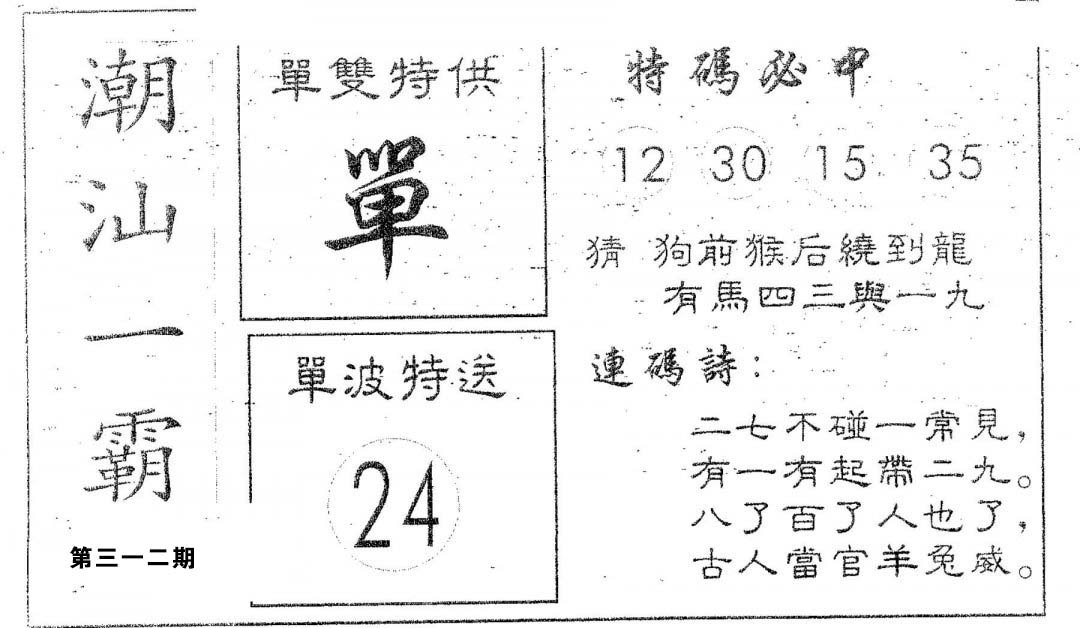 潮汕一霸
第三一二期
單雙特供
單
單波特送
24
特碼必中
12 30 15 35
猜 狗前猴后繞到龍
有馬四三與一九
連碼詩：
二七不碰一常見，
有一有起帶二九。
八了百了人也了，
古人當官羊兔威。